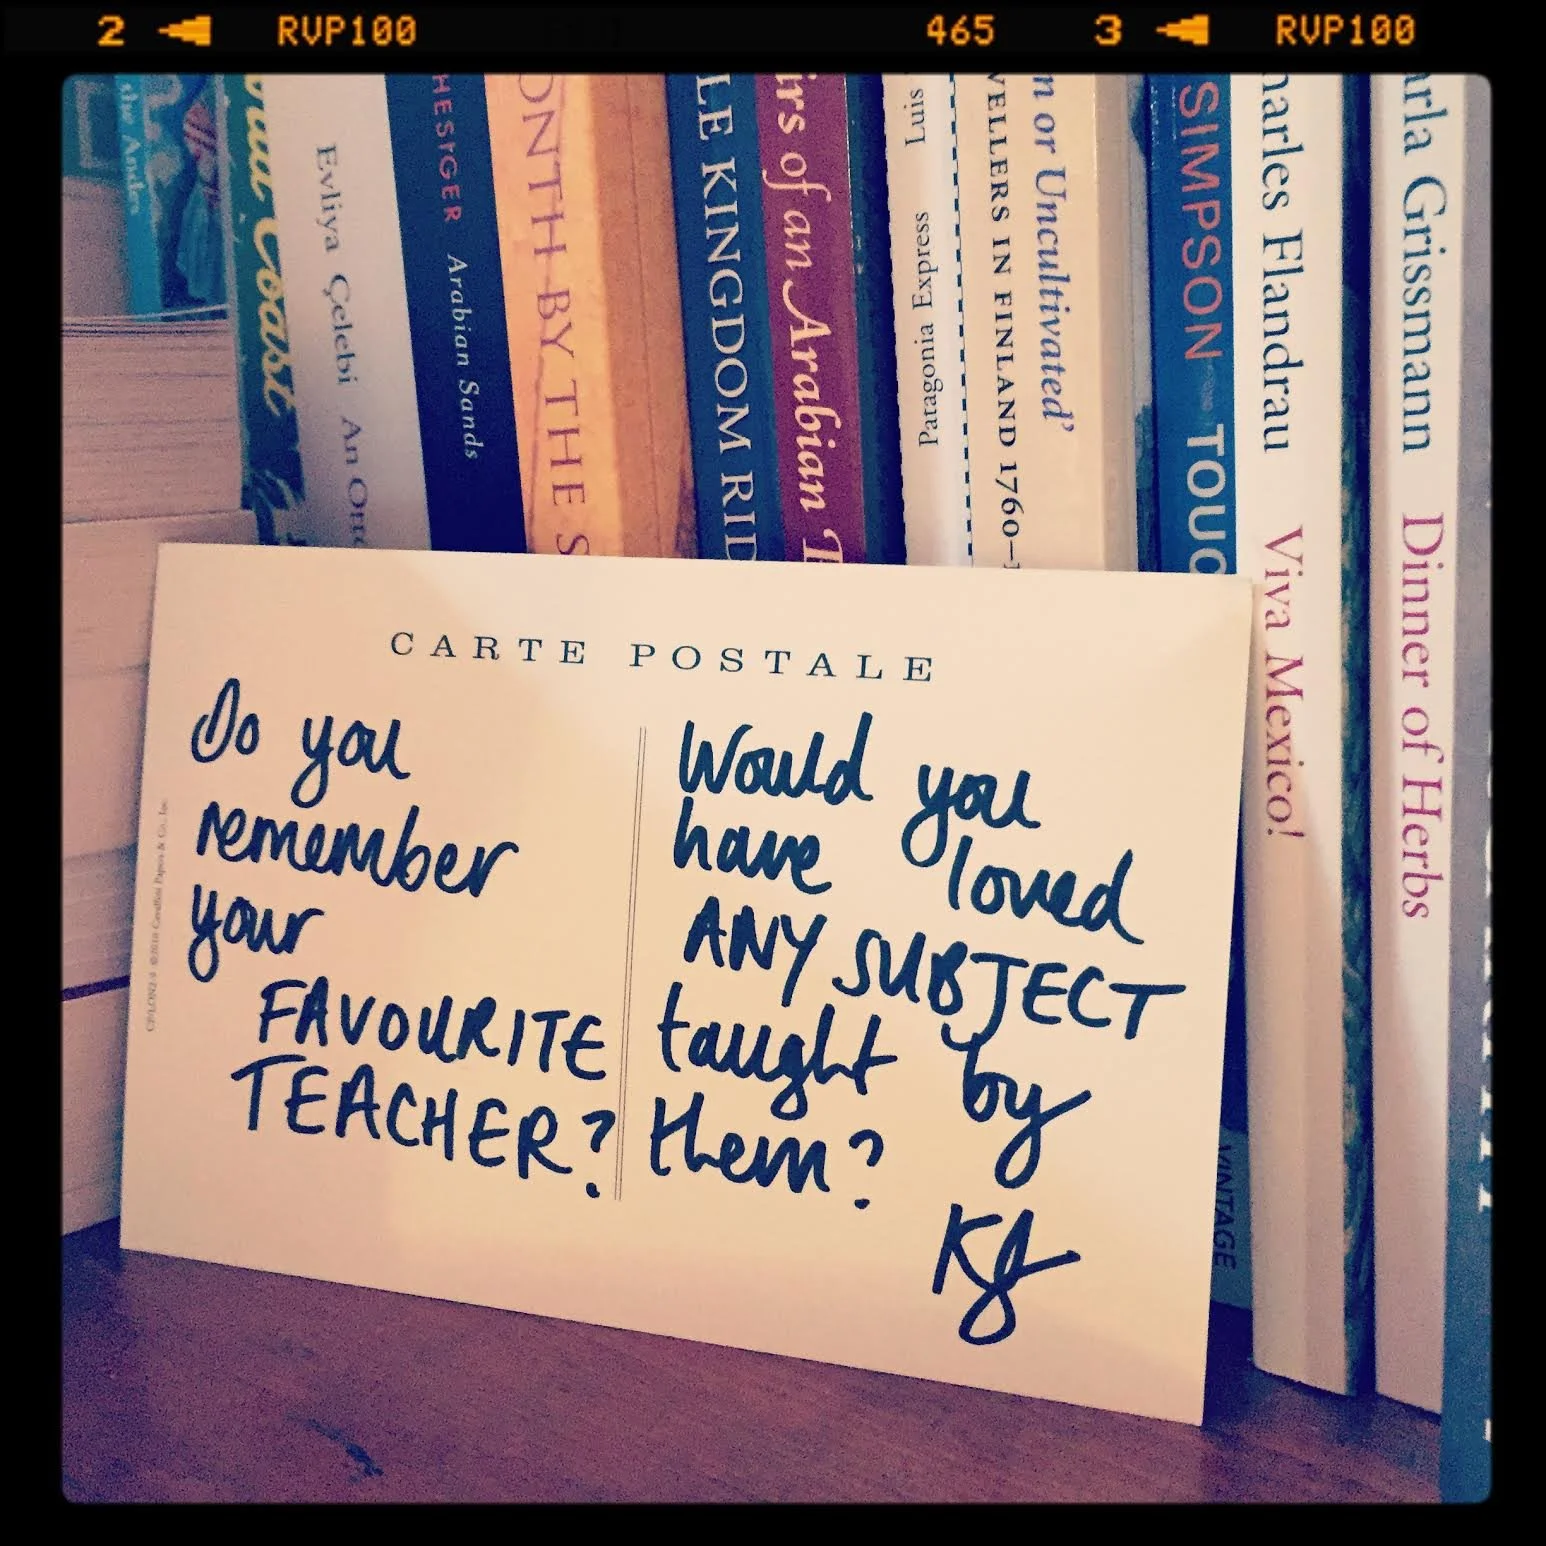 2 RVP100 465 3 RVP100
de Ands
Coast
Evliya Çelebi An
HESIGER Arabian Sands
ONTH BY THE S
LE KINGDOM RID
irs of an Arabian
Luis
Paragonia Express
VELLERS IN FINLAND 1760–
n or Uncultivated'
SIMPSON TOUC
VINTAGE
harles Flandrau Viva Mexico!
arla Grissmann Dinner of Herbs
CARTE POSTALE
Do you
remember
your
FAVOURITE
TEACHER?
Would you
have loved
ANY SUBJECT
taught by
them?
KJ